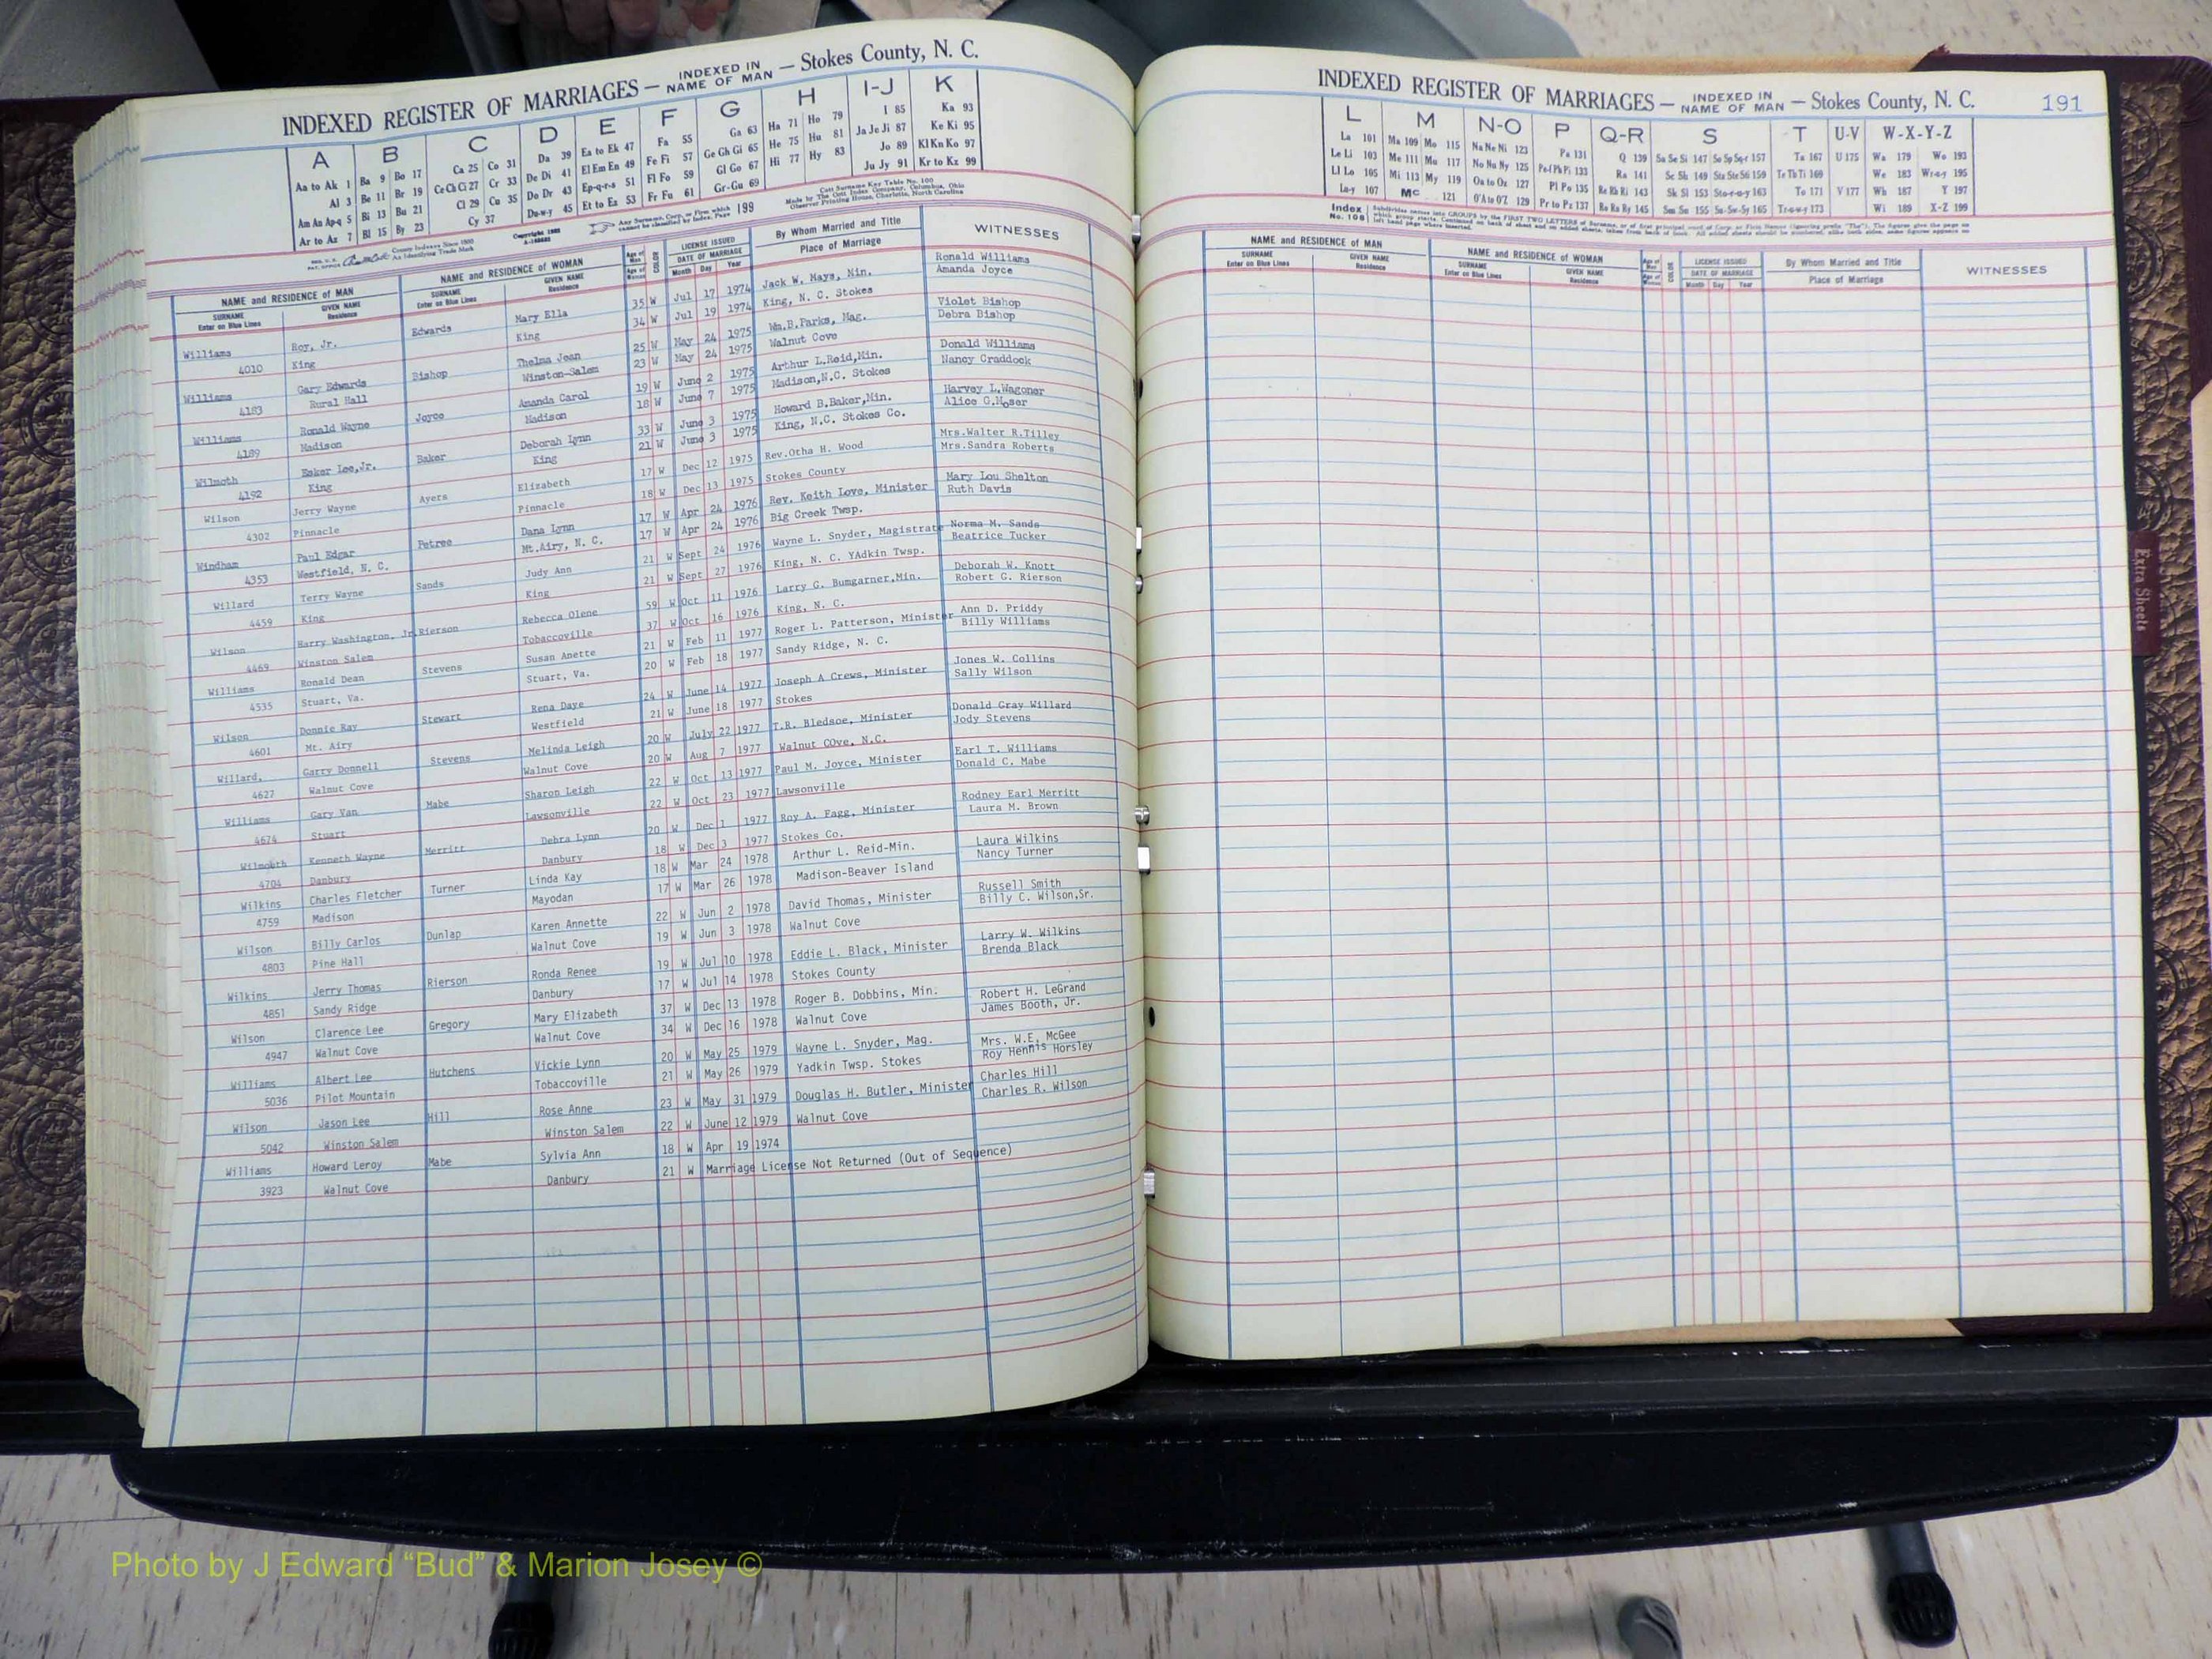 INDEXED REGISTER OF MARRIAGES — INDEXED IN NAME OF MAN — Stokes County, N. C.
A B C D E F G H I-J K
Aa to Ak 1 Ba 9 Bo 17 Ca 25 Co 31 Da 39 Ea to Ek 47 Fa 55 Ga 63 Ha 71 Ho 79 I 85 Ka 93
Al 3 Be 11 Br 19 Ce Ch Ci 27 Cr 33 De Di 41 El Em En 49 Fe Fi 57 Ge Gh Gi 65 He 75 Hu 81 Ja Je Ji 87 Ke Ki 95
Am An Ap-q 5 Bi 13 Bu 21 Cl 29 Cu 35 Do Dr 43 Ep-q-r-s 51 Fl Fo 59 Gl Go 67 Hi 77 Hy 83 Jo 89 Kl Kn Ko 97
Ar to Az 7 Bl 15 By 23 Cy 37 Du-w-y 45 Et to Ez 53 Fr Fu 61 Gr-Gu 69 Ju Jy 91 Kr to Kz 99
Any Surname, Corp. or Firm which cannot be classified by Index, Page 199
NAME and RESIDENCE of MAN NAME and RESIDENCE of WOMAN LICENSE ISSUED By Whom Married and Title WITNESSES
SURNAME GIVEN NAME SURNAME GIVEN NAME DATE OF MARRIAGE Place of Marriage
Enter on Blue Lines Residence Enter on Blue Lines Residence Month Day Year
Williams Roy, Jr. Edwards Mary Ella 35 W Jul 17 1974 Jack W. Mays, Min. Ronald Williams
4010 King King 34 W Jul 19 1974 King, N. C. Stokes Amanda Joyce
Williams Gary Edwards Bishop Thelma Jean 25 W May 24 1975 Wm.B.Parks, Mag. Violet Bishop
4183 Rural Hall Winston-Salem 23 W May 24 1975 Walnut Cove Debra Bishop
Williams Ronald Wayne Joyce Amanda Carol 19 W June 2 1975 Arthur L.Reid,Min. Donald Williams
4189 Madison Madison 18 W June 7 1975 Madison,N.C. Stokes Nancy Craddock
Wilmoth Esker Lee,Jr. Baker Deborah Lynn 33 W June 3 1975 Howard B.Baker,Min. Harvey L.Wagoner
4192 King King 21 W June 3 1975 King, N.C. Stokes Co. Alice G.Moser
Wilson Jerry Wayne Ayers Elizabeth 17 W Dec 12 1975 Rev.Otha H. Wood Mrs.Walter R.Tilley
4302 Pinnacle Pinnacle 18 W Dec 13 1975 Stokes County Mrs.Sandra Roberts
Windham Paul Edgar Petree Dana Lynn 17 W Apr 24 1976 Rev. Keith Love, Minister Mary Lou Shelton
4353 Westfield, N. C. Mt.Airy, N. C. 17 W Apr 24 1976 Big Creek Twsp. Ruth Davis
Willard Terry Wayne Sands Judy Ann 21 W Sept 24 1976 Wayne L. Snyder, Magistrate Norma M. Sands
4459 King King 21 W Sept 27 1976 King, N. C. YAdkin Twsp. Beatrice Tucker
Wilson Harry Washington, Jr. Rierson Rebecca Olene 59 W Oct 11 1976 Larry G. Bumgarner,Min. Deborah W. Knott
4469 Winston Salem Tobaccoville 37 W Oct 16 1976 King, N. C. Robert G. Rierson
Williams Ronald Dean Stevens Susan Anette 21 W Feb 11 1977 Roger L. Patterson, Minister Ann D. Priddy
4535 Stuart, Va. Stuart, Va. 20 W Feb 18 1977 Sandy Ridge, N. C. Billy Williams
Wilson Donnie Ray Stewart Rena Daye 24 W June 14 1977 Joseph A Crews, Minister Jones W. Collins
4601 Mt. Airy Westfield 21 W June 18 1977 Stokes Sally Wilson
Willard, Garry Donnell Stevens Melinda Leigh 20 W July 22 1977 T.R. Bledsoe, Minister Donald Gray Willard
4627 Walnut Cove Walnut Cove 20 W Aug 7 1977 Walnut COve, N.C. Jody Stevens
Williams Gary Van Mabe Sharon Leigh 22 W Oct 13 1977 Paul M. Joyce, Minister Earl T. Williams
4674 Stuart Lawsonville 22 W Oct 23 1977 Lawsonville Donald C. Mabe
Wilmouth Kenneth Wayne Merritt Debra Lynn 20 W Dec 1 1977 Roy A. Fagg, Minister Rodney Earl Merritt
4704 Danbury Danbury 18 W Dec 3 1977 Stokes Co. Laura M. Brown
Wilkins Charles Fletcher Turner Linda Kay 18 W Mar 24 1978 Arthur L. Reid-Min. Laura Wilkins
4759 Madison Mayodan 17 W Mar 26 1978 Madison-Beaver Island Nancy Turner
Wilson Billy Carlos Dunlap Karen Annette 22 W Jun 2 1978 David Thomas, Minister Russell Smith
4803 Pine Hall Walnut Cove 19 W Jun 3 1978 Walnut Cove Billy C. Wilson,Sr.
Wilkins Jerry Thomas Rierson Ronda Renee 19 W Jul 10 1978 Eddie L. Black, Minister Larry W. Wilkins
4851 Sandy Ridge Danbury 17 W Jul 14 1978 Stokes County Brenda Black
Wilson Clarence Lee Gregory Mary Elizabeth 37 W Dec 13 1978 Roger B. Dobbins, Min. Robert H. LeGrand
4947 Walnut Cove Walnut Cove 34 W Dec 16 1978 Walnut Cove James Booth, Jr.
Williams Albert Lee Hutchens Vickie Lynn 20 W May 25 1979 Wayne L. Snyder, Mag. Mrs. W.E. McGee
5036 Pilot Mountain Tobaccoville 21 W May 26 1979 Yadkin Twsp. Stokes Roy Hennis Horsley
Wilson Jason Lee Hill Rose Anne 23 W May 31 1979 Douglas H. Butler, Minister Charles Hill
5042 Winston Salem Winston Salem 22 W June 12 1979 Walnut Cove Charles R. Wilson
Williams Howard Leroy Mabe Sylvia Ann 18 W Apr 19 1974
3923 Walnut Cove Danbury 21 W Marriage License Not Returned (Out of Sequence)
INDEXED REGISTER OF MARRIAGES — INDEXED IN NAME OF MAN — Stokes County, N. C. 191
L M N-O P Q-R S T U-V W-X-Y-Z
La 101 Ma 109 Mo 115 Na Ne Ni 123 Pa 131 Q 139 Sa Se Si 147 So Sp Sq-r 157 Ta 167 U 175 Wa 179 Wo 193
Le Li 103 Me 111 Mu 117 No Nu Ny 125 Pe-f Ph Pi 133 Ra 141 Sc Sh 149 Sta Ste Sti 159 Te Th Ti 169 We 183 Wr-u-y 195
Ll Lo 105 Mi 113 My 119 Oa to Oz 127 Pl Po 135 Re Rh Ri 143 Sk Sl 153 Sto-r-u-y 163 To 171 V 177 Wh 187 Y 197
Lu-y 107 Mc 121 O'A to O'Z 129 Pr to Pz 137 Ro Ru Ry 145 Sm Sn 155 Su-Sw-Sy 165 Tr-u-w-y 173 Wi 189 X-Z 199
NAME and RESIDENCE of MAN NAME and RESIDENCE of WOMAN LICENSE ISSUED By Whom Married and Title WITNESSES
SURNAME GIVEN NAME SURNAME GIVEN NAME DATE OF MARRIAGE Place of Marriage
Enter on Blue Lines Residence Enter on Blue Lines Residence Month Day Year
Extra Sheets
Photo by J Edward “Bud” & Marion Josey ©